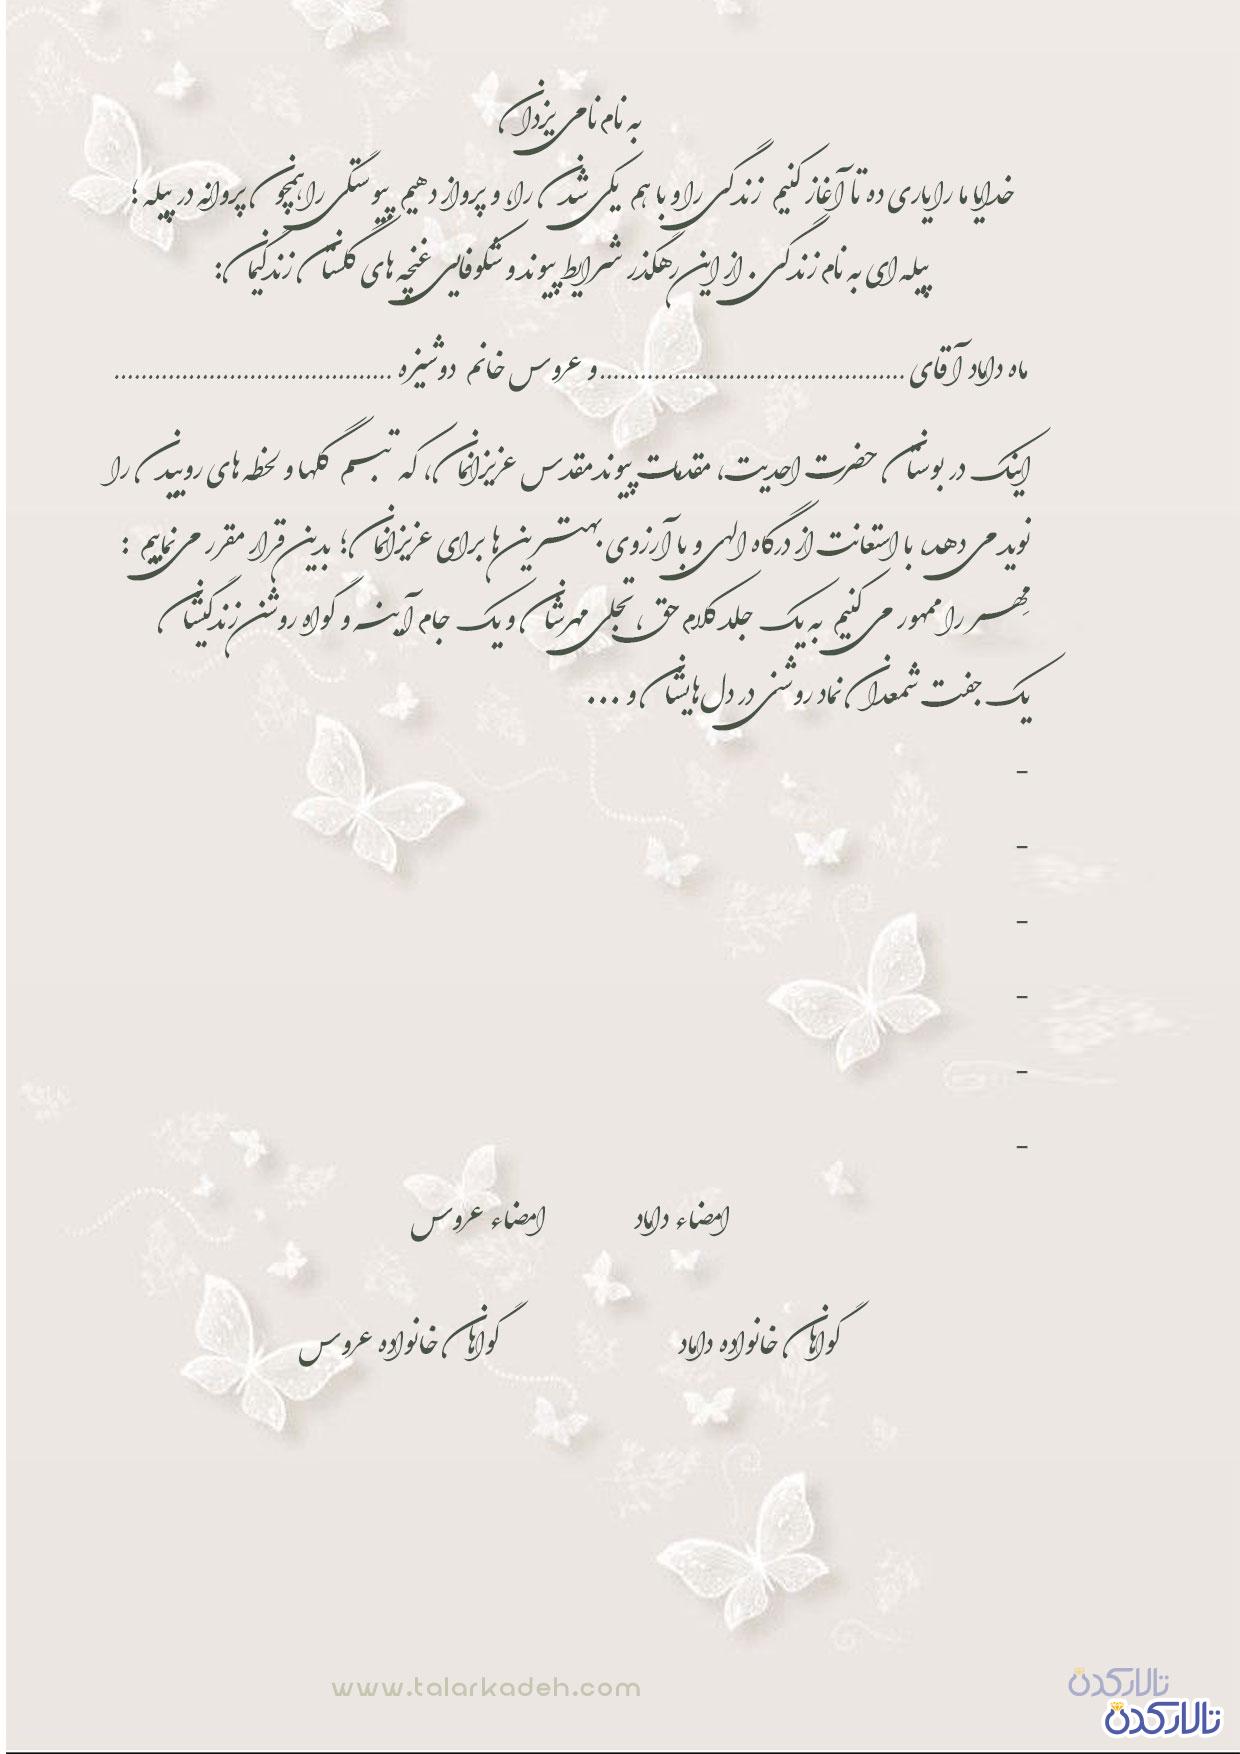 به نام نامی یزدان
خدایا ما را یاری ده تا آغاز کنیم زندگی را و با هم یکی شدن را، و پرواز دهیم پیوستگی را همچون پروانه در پیله ؛
پیله ای به نام زندگی . از این رهگذر شرایط پیوند و شکوفایی غنچه های گلستان زندگیمان:
ماه داماد آقای ............................................. و عروس خانم دوشیزه .........................................
اینک در بوستان حضرت احدیت، مقدمات پیوند مقدس عزیزانمان، که تبسم گلها و لحظه های روییدن را
نوید می دهد، با استعانت از درگاه الهی و با آرزوی بهترین ها برای عزیزانمان؛ بدین قرار مقرر می نماییم :
مِهـر را ممهور می کنیم به یک جلد کلام حق، تجلی مهرشان و یک جام آینه و گواه روشن زندگیشان
یک جفت شمعدان نماد روشنی در دل هایشان و ...
-
-
-
-
-
-
امضاء داماد امضاء عروس
گواهان خانواده داماد گواهان خانواده عروس
www.talarkadeh.com
تالارکده
تالارکده